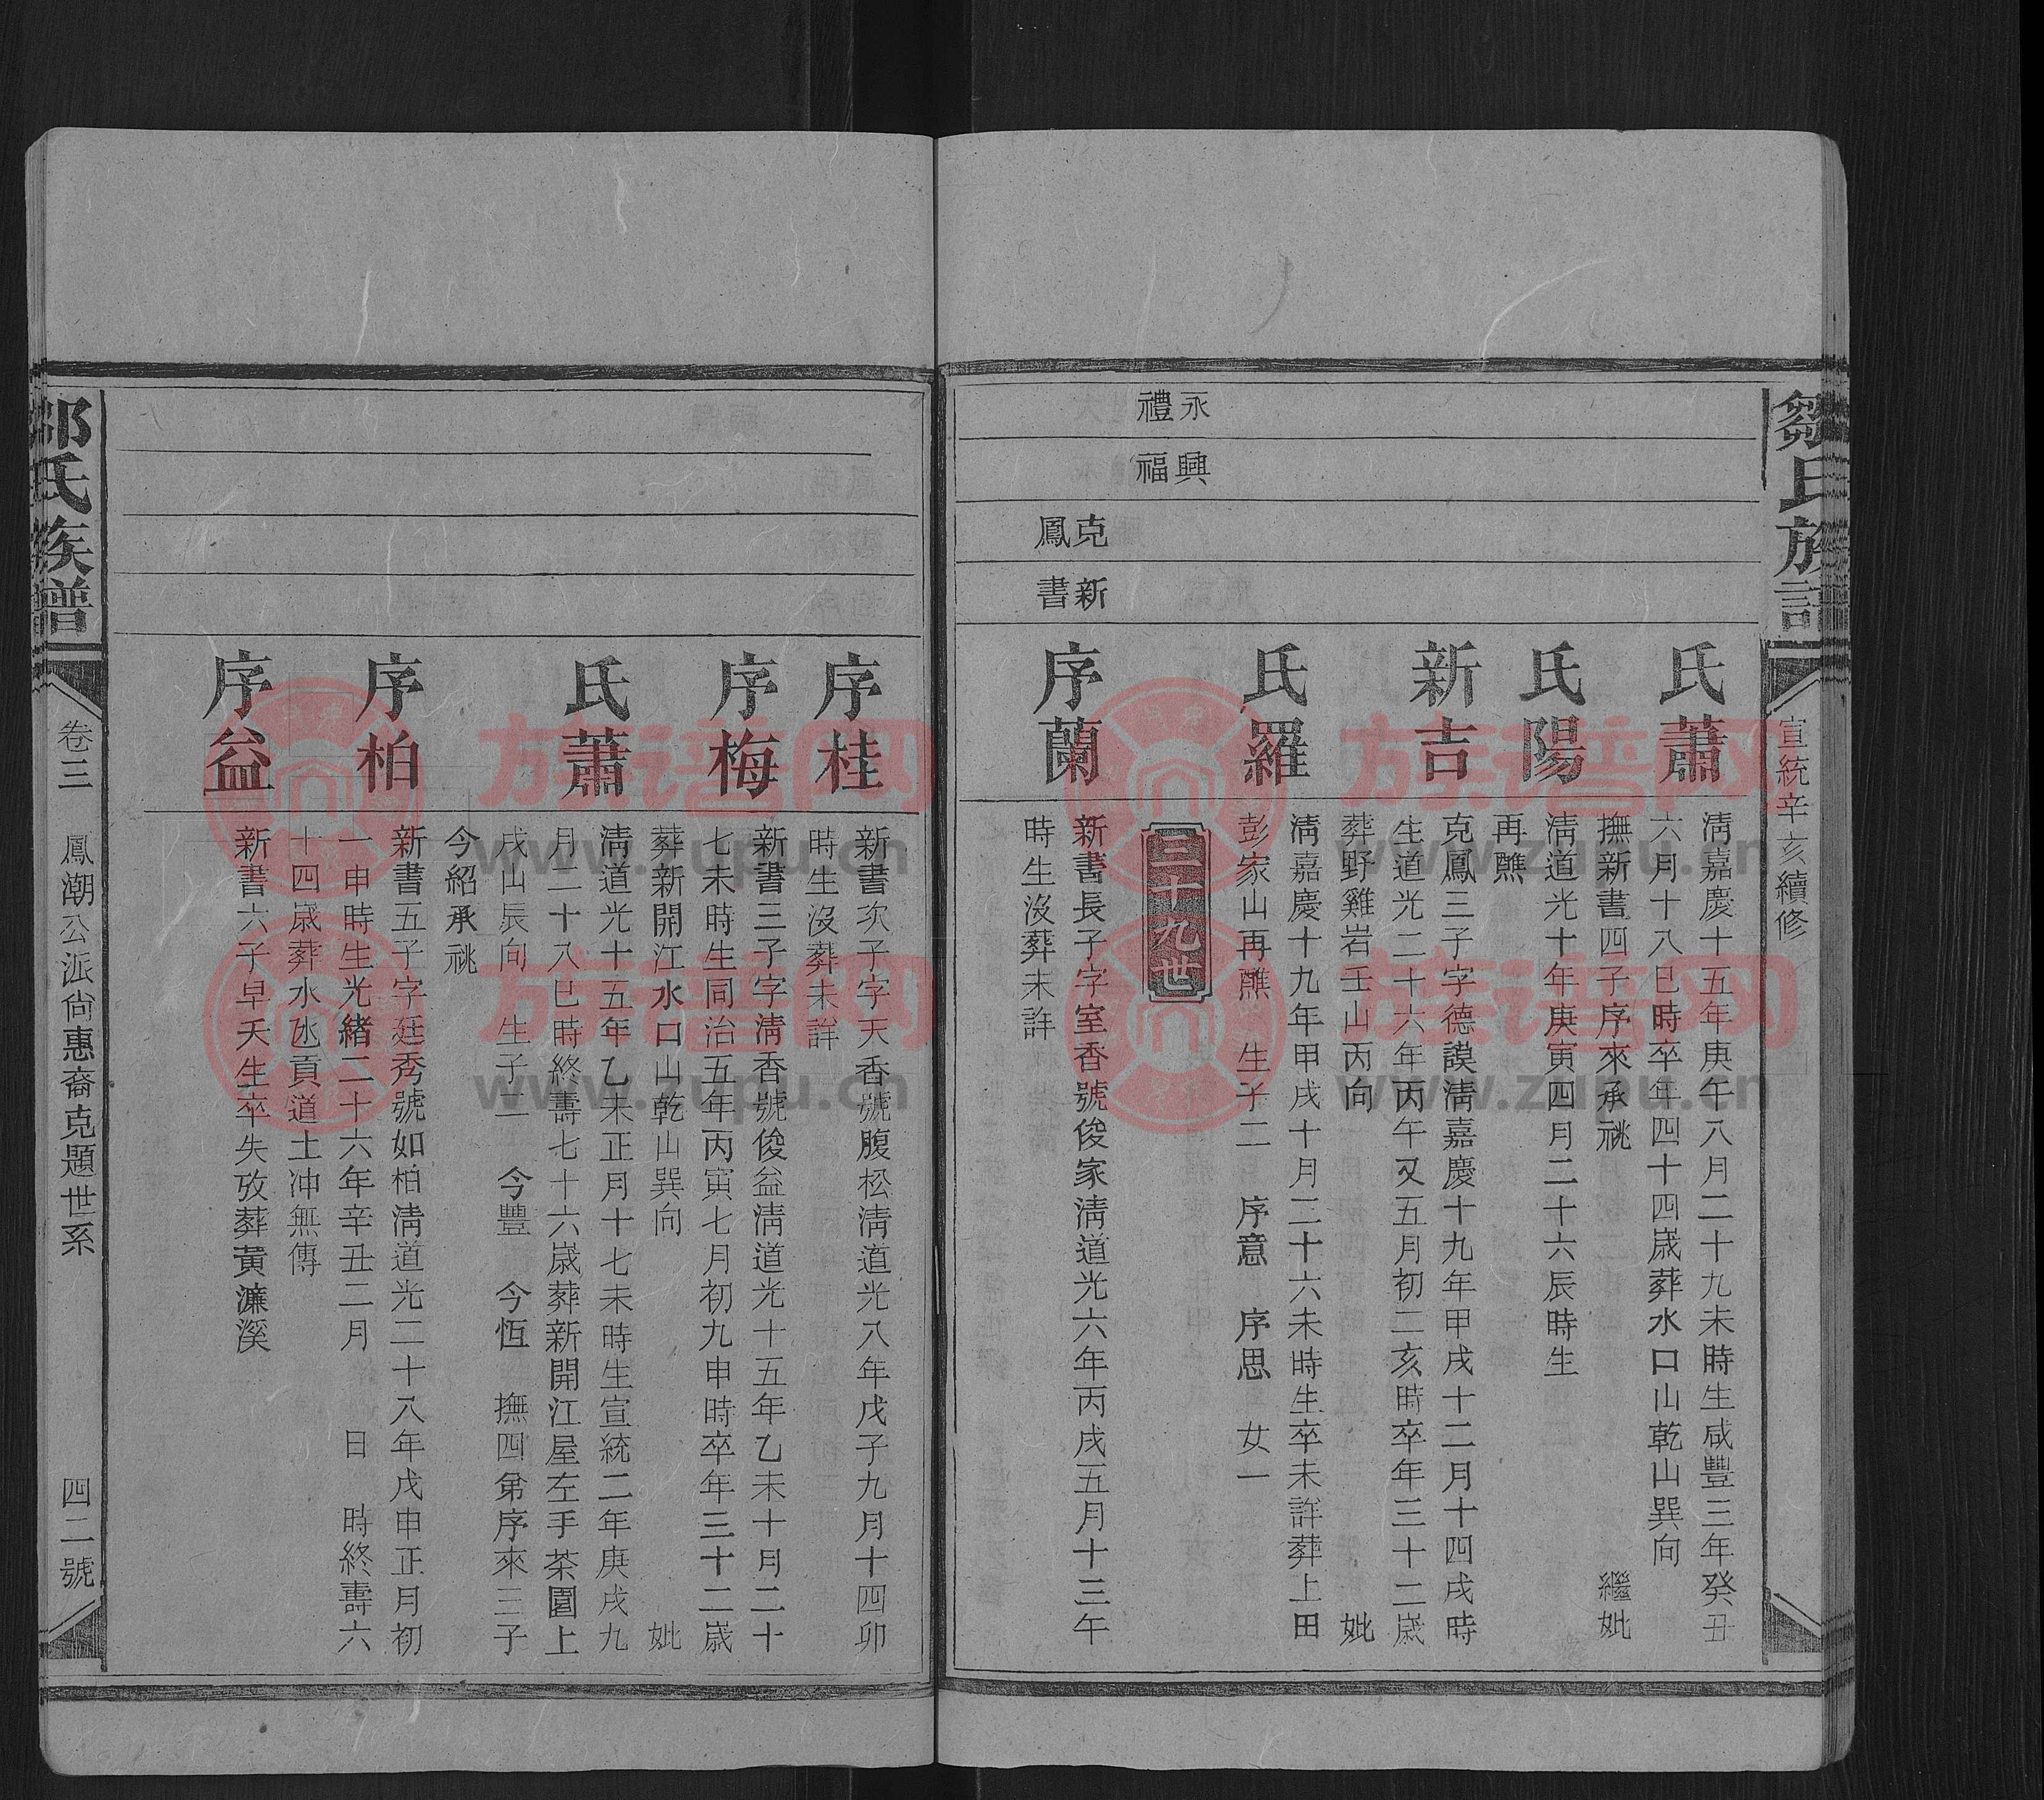 鄒氏族譜
宣統辛亥續修
永興
禮福
克新
鳳書
氏蕭
清嘉慶十五年庚午八月二十九未時生咸豐三年癸丑
六月十八巳時卒年四十四歲葬水口山乾山巽向
撫新書四子序來承祧 繼妣
氏陽
清道光十年庚寅四月二十六辰時生
再醮
新吉
克鳳三子字德謨清嘉慶十九年甲戌十二月十四戌時
生道光二十六年丙午又五月初二亥時卒年三十二歲
葬野雞岩壬山丙向 妣
氏羅
清嘉慶十九年甲戌十月二十六未時生卒未詳葬上田
彭家山再醮 生子二 序意 序思 女一
三十九世
序蘭
新書長子字室香號俊家清道光六年丙戌五月十三年
時生沒葬未詳
序桂
新書次子字天香號腹松清道光八年戊子九月十四卯
時生沒葬未詳
序梅
新書三子字清香號俊益清道光十五年乙未十月二十
七未時生同治五年丙寅七月初九申時卒年三十二歲
葬新開江水口山乾山巽向 妣
氏蕭
清道光十五年乙未正月十七未時生宣統二年庚戌九
月二十八巳時終壽七十六歲葬新開江屋左手茶園上
戌山辰向 生子二 今豐 今恆 撫四弟序來三子
今紹承祧
序柏
新書五子字廷秀號如柏清道光二十八年戊申正月初
一申時生光緒二十六年辛丑二月 日 時終壽六
十四歲葬水氹貢道土冲無傳
序益
新書六子早夭生卒失攷葬黃濂溪
鄒氏族譜
卷三
鳳潮公派尙惠裔克題世系
四二號
族谱网
www.zupu.cn
族谱网
www.zupu.cn
族谱网
www.zupu.cn
族谱网
www.zupu.cn